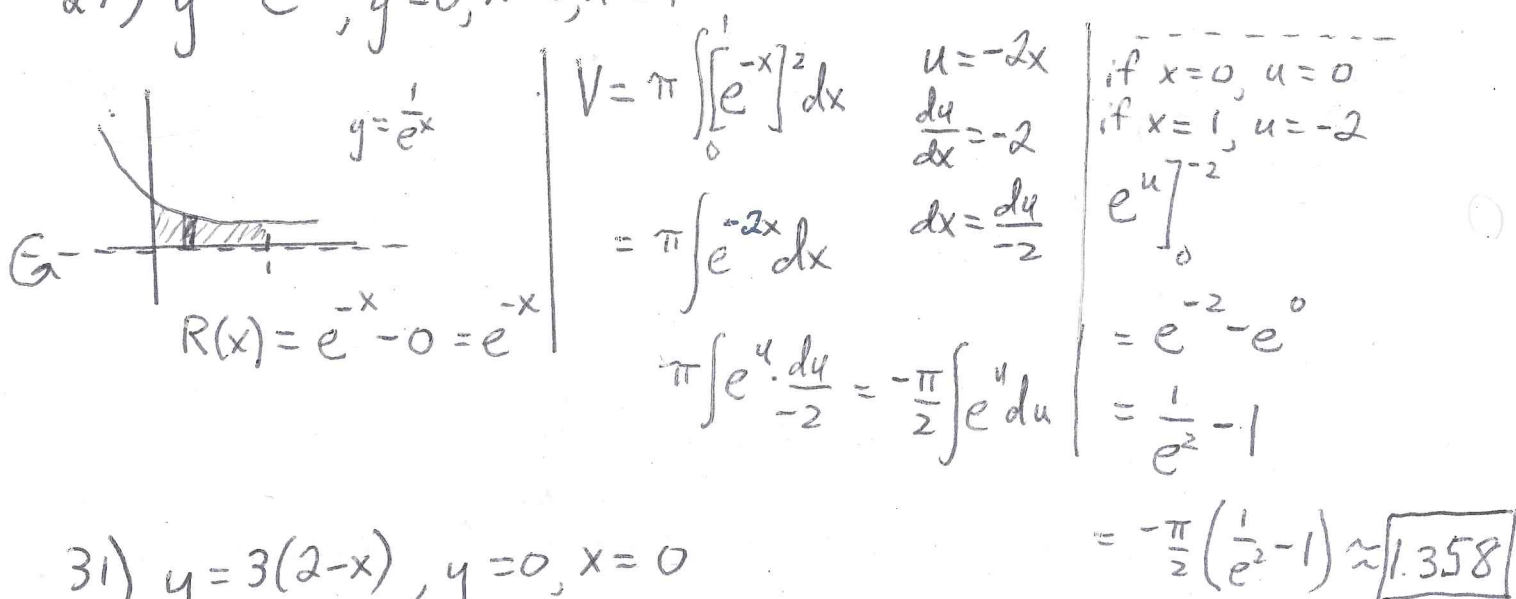 y = 1/e^x
R(x) = e^-x - 0 = e^-x
V = π ∫_0^1 [e^-x]^2 dx
= π ∫ e^-2x dx
π ∫ e^u · du/-2 = -π/2 ∫ e^u du
u = -2x
du/dx = -2
dx = du/-2
if x = 0, u = 0
if x = 1, u = -2
e^u ]_0^-2
= e^-2 - e^0
= 1/e^2 - 1
= -π/2 (1/e^2 - 1) ≈ 1.358
31) y = 3(2-x), y = 0, x = 0